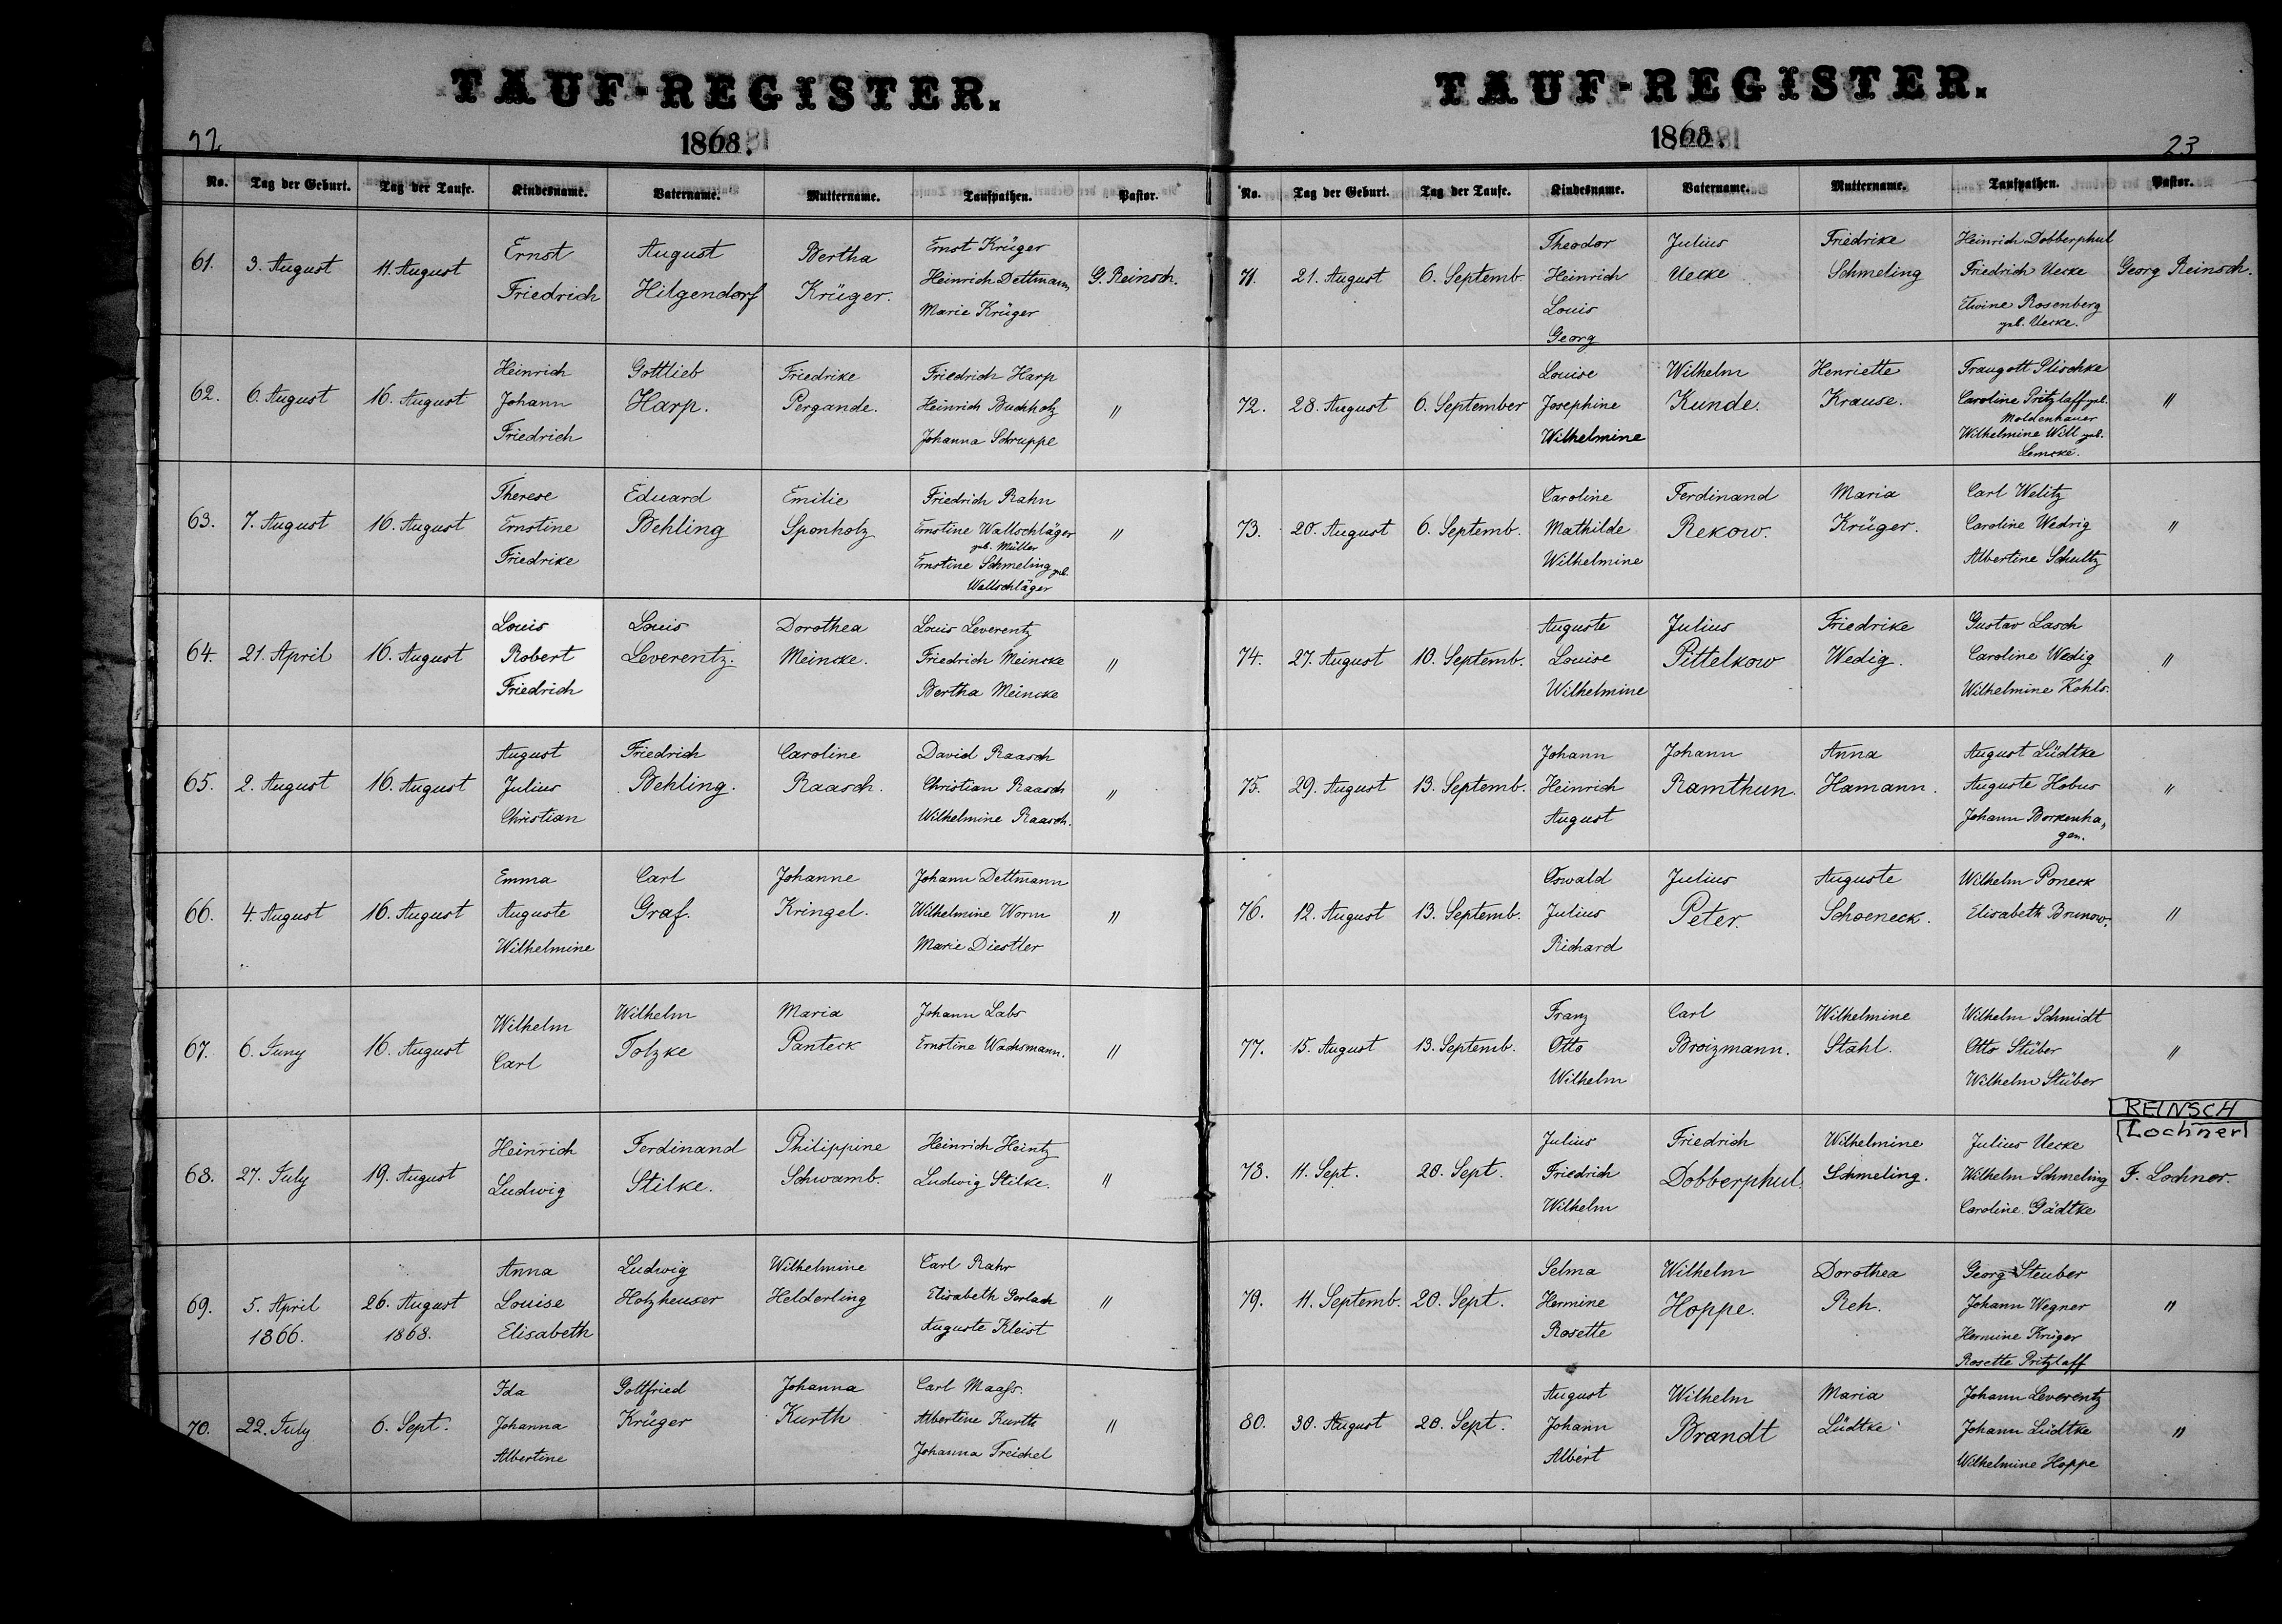 TAUF-REGISTER.
1868.
22
No. Tag der Geburt. Tag der Taufe. Kindesname. Vatername. Muttername. Taufpathen. Pastor.
61. 3. August 11. August Ernst Friedrich August Hilgendorf Bertha Krüger. Ernst Krüger Heinrich Dettmann Marie Krüger G. Reinsch.
62. 6. August 16. August Heinrich Johann Friedrich Gottlieb Harp. Friedrike Pergande. Friedrich Harp Heinrich Buchholz Johanna Schruppe "
63. 7. August 16. August Therese Ernstine Friedrike Eduard Behling Emilie Sponholz Friedrich Rahn Ernstine Wallschläger geb. Müller Ernstine Schmeling geb. Wallschläger "
64. 21. April 16. August Louis Robert Friedrich Louis Leverentz. Dorothea Meincke. Louis Leverentz Friedrich Meincke Bertha Meincke "
65. 2. August 16. August August Julius Christian Friedrich Behling. Caroline Raasch. David Raasch Christian Raasch Wilhelmine Raasch. "
66. 4. August 16. August Emma Auguste Wilhelmine Carl Graf. Johanne Kringel. Johann Dettmann Wilhelmine Worm Marie Diestler "
67. 6. Juny 16. August Wilhelm Carl Wilhelm Tolzke Maria Panteck Johann Labs Ernstine Wachsmann. "
68. 27. July 19. August Heinrich Ludwig Ferdinand Stilke. Philippine Schwamb. Heinrich Heintz Ludwig Stilke. "
69. 5. April 1866. 26. August 1868. Anna Louise Elisabeth Ludwig Holzheuser Wilhelmine Helderling Carl Rahr Elisabeth Gerlach Auguste Kleist "
70. 22. July 6. Sept. Ida Johanna Albertine Gottfried Krüger Johanna Kurth Carl Maass. Albertine Kurth Johanna Treichel "
TAUF-REGISTER.
1868.
23
No. Tag der Geburt. Tag der Taufe. Kindesname. Vatername. Muttername. Taufpathen. Pastor.
71. 21. August 6. Septemb. Theodor Heinrich Louis Georg Julius Uecke Friedrike Schmeling Heinrich Dobberphul Friedrich Uecke Elwine Rosenberg geb. Uecke. Georg Reinsch.
72. 28. August 6. September Louise Josephine Wilhelmine Wilhelm Kunde. Henriette Krause. Traugott Plischke Caroline Pritzlaff geb. Moldenhauer Wilhelmine Will geb. Lemcke. "
73. 20. August 6. Septemb. Caroline Mathilde Wilhelmine Ferdinand Rekow. Maria Krüger. Carl Welitz Caroline Wedrig Albertine Schultz "
74. 27. August 10. Septemb. Auguste Louise Wilhelmine Julius Pittelkow Friedrike Wedig. Gustav Lasch Caroline Wedig Wilhelmine Kohls. "
75. 29. August 13. Septemb. Johann Heinrich August Johann Ramthun. Anna Hamann. August Lüdtke Auguste Hobus Johann Borkenhagen. "
76. 12. August 13. Septemb. Oswald Julius Richard Julius Peter. Auguste Schoeneck. Wilhelm Poneck Elisabeth Brunow. "
77. 15. August 13. Septemb. Franz Otto Wilhelm Carl Broizmann. Wilhelmine Stahl. Wilhelm Schmidt Otto Stüber Wilhelm Stüber "
REINSCH
Lochner
78. 11. Sept. 20. Sept. Julius Friedrich Wilhelm Friedrich Dobberphul. Wilhelmine Schmeling. Julius Uecke Wilhelm Schmeling Caroline Gädtke F. Lochner.
79. 11. Septemb. 20. Sept. Selma Hermine Rosette Wilhelm Hoppe. Dorothea Reh. Georg Steuber Johann Wegner Hermine Krüger Rosette Pritzlaff "
80. 30. August 20. Sept. August Johann Albert Wilhelm Brandt Maria Lüdtke Johann Leverentz Johann Lüdtke Wilhelmine Hoppe "